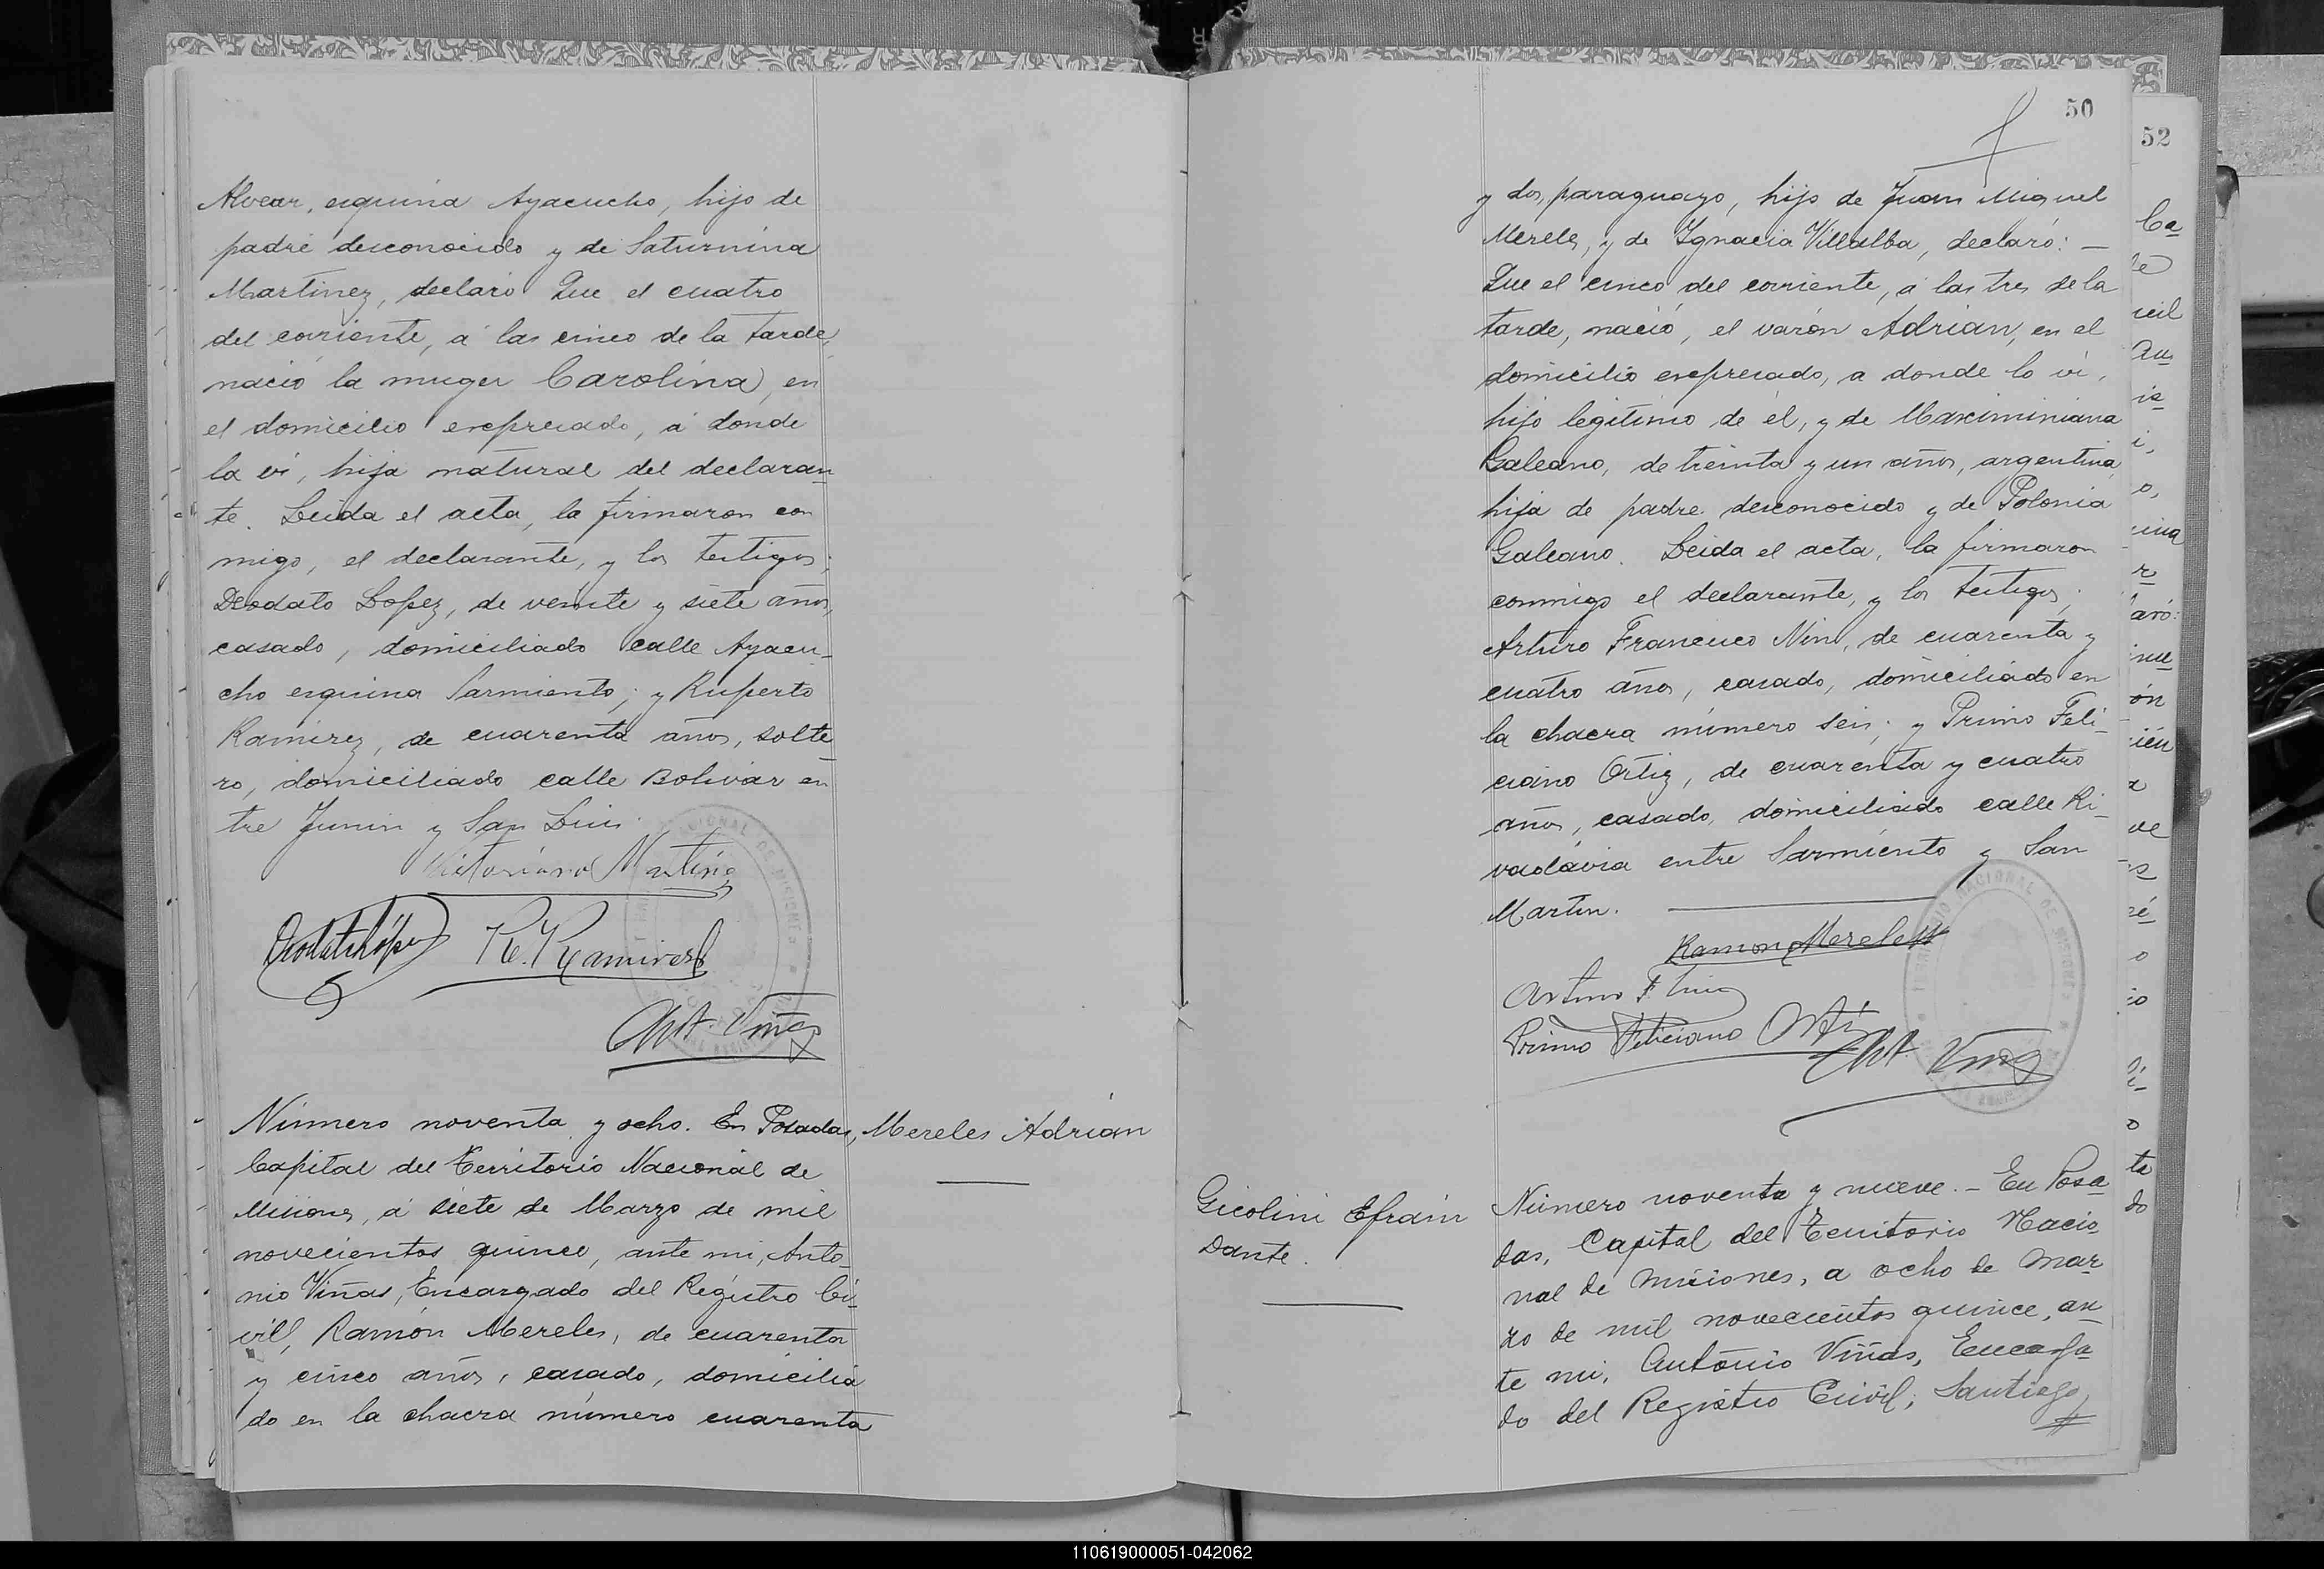 Alvear, esquina Ayacucho, hijo de
padre desconocido y de Saturnina
Martinez, declaró Que el cuatro
del corriente, á las cinco de la tarde,
nació la muger Carolina, en
el domicilio expresado, á donde
la ví, hija natural del declaran
te. Leida el acta, la firmaron con
migo, el declarante, y los testigos;
Deodato Lopez, de veinte y siete años,
casado, domiciliado calle Ayacu-
cho esquina Sarmiento; y Ruperto
Ramirez, de cuarenta años, solte
ro, domiciliado calle Bolivar en
tre Junin y San Luis.
Victoriano Martinez
Deodato López R. Ramirez
Ant. Viñas
Número noventa y ocho. En Posadas,
Capital del Territorio Nacional de
Misiones, á siete de Marzo de mil
novecientos quince, ante mi, Anto-
nio Viñas, Encargado del Registro Ci-
vil, Ramón Mereles, de cuarenta
y cinco años, casado, domicilia
do en la chacra número cuarenta
Mereles Adrián
50
y dos, paraguayo, hijo de Juan Miguel
Mereles, y de Ignacia Villalba, declaró: —
Que el cinco del corriente, á las tres de la
tarde, nació, el varón Adrian, en el
domicilio expresado, a donde lo ví,
hijo legítimo de él, y de Maximiniana
Galeano, de treinta y un años, argentina,
hija de padre desconocido y de Polonia
Galeano. Leida el acta, la firmaron
conmigo el declarante, y los testigos;
Arturo Francisco Nin, de cuarenta y
cuatro años, casado, domiciliado en
la chacra número seis; y Primo Feli-
ciano Ortiz, de cuarenta y cuatro
años, casado, domiciliado calle Ri-
vadavia entre Sarmiento y San
Martin.
Ramon Mereles
Arturo F Nin
Primo Feliciano Ortiz
Ant. Viñas
Gicolini Efrain
Dante.
Número noventa y nueve. - En Posa
das, Capital del Territorio Nacio
nal de Misiones, a ocho de Mar
zo de mil novecientos quince, an
te mi, Antonio Viñas, Encarga
do del Registro Civil, Santiago
52
110619000051-042062